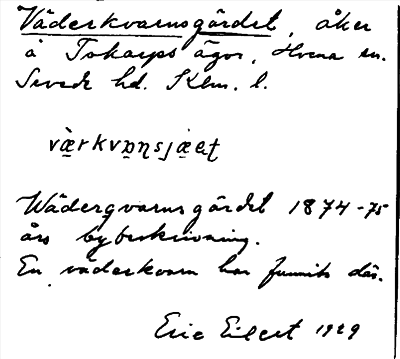 Väderkvarnsgärdet, åker
å Tokarps ägor, Hvena sn.
Sevede hd. Klm. l.
Wädergvarnsgärdet 1874-75
års bybeskrivning.
En vaderkvarn har funnits där.
Eric Eilert 1929